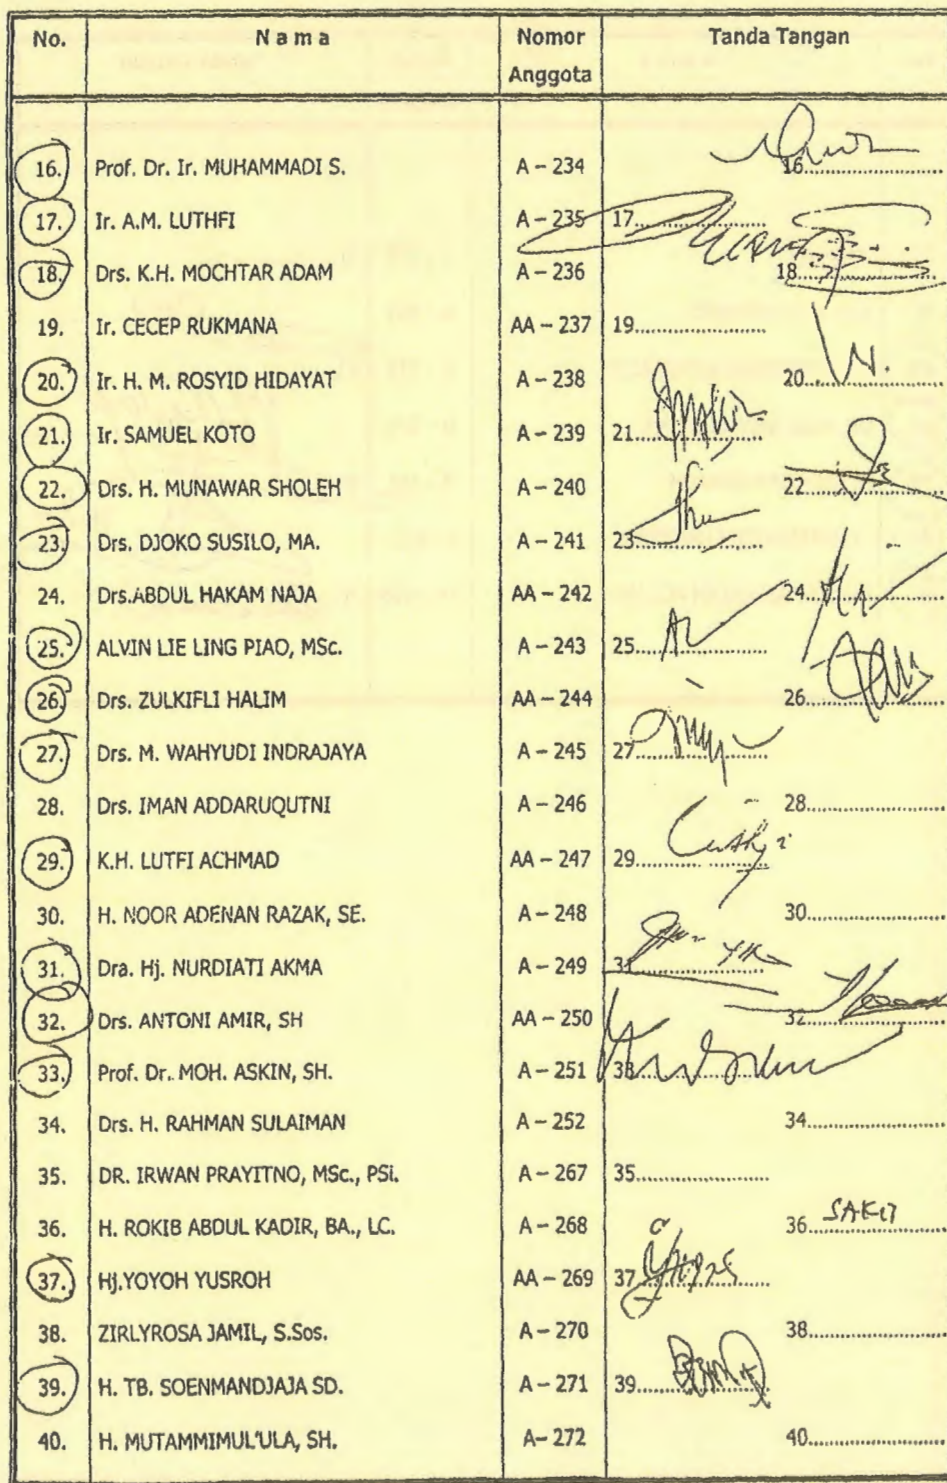 No. Nama Nomor Anggota Tanda Tangan
16. Prof. Dr. Ir. MUHAMMADI S. A – 234 16..................
17. Ir. A.M. LUTHFI A – 235 17..................
18. Drs. K.H. MOCHTAR ADAM A – 236 18..................
19. Ir. CECEP RUKMANA AA – 237 19..................
20. Ir. H. M. ROSYID HIDAYAT A – 238 20..................
21. Ir. SAMUEL KOTO A – 239 21..................
22. Drs. H. MUNAWAR SHOLEH A – 240 22..................
23. Drs. DJOKO SUSILO, MA. A – 241 23..................
24. Drs.ABDUL HAKAM NAJA AA – 242 24..................
25. ALVIN LIE LING PIAO, MSc. A – 243 25..................
26. Drs. ZULKIFLI HALIM AA – 244 26..................
27. Drs. M. WAHYUDI INDRAJAYA A – 245 27..................
28. Drs. IMAN ADDARUQUTNI A – 246 28..................
29. K.H. LUTFI ACHMAD AA – 247 29..................
30. H. NOOR ADENAN RAZAK, SE. A – 248 30..................
31. Dra. Hj. NURDIATI AKMA A – 249 31..................
32. Drs. ANTONI AMIR, SH AA – 250 32..................
33. Prof. Dr. MOH. ASKIN, SH. A – 251 33..................
34. Drs. H. RAHMAN SULAIMAN A – 252 34..................
35. DR. IRWAN PRAYITNO, MSc., PSi. A – 267 35..................
36. H. ROKIB ABDUL KADIR, BA., LC. A – 268 36.. SAKIT
37. Hj.YOYOH YUSROH AA – 269 37..................
38. ZIRLYROSA JAMIL, S.Sos. A – 270 38..................
39. H. TB. SOENMANDJAJA SD. A – 271 39..................
40. H. MUTAMMIMUL'ULA, SH. A– 272 40..................